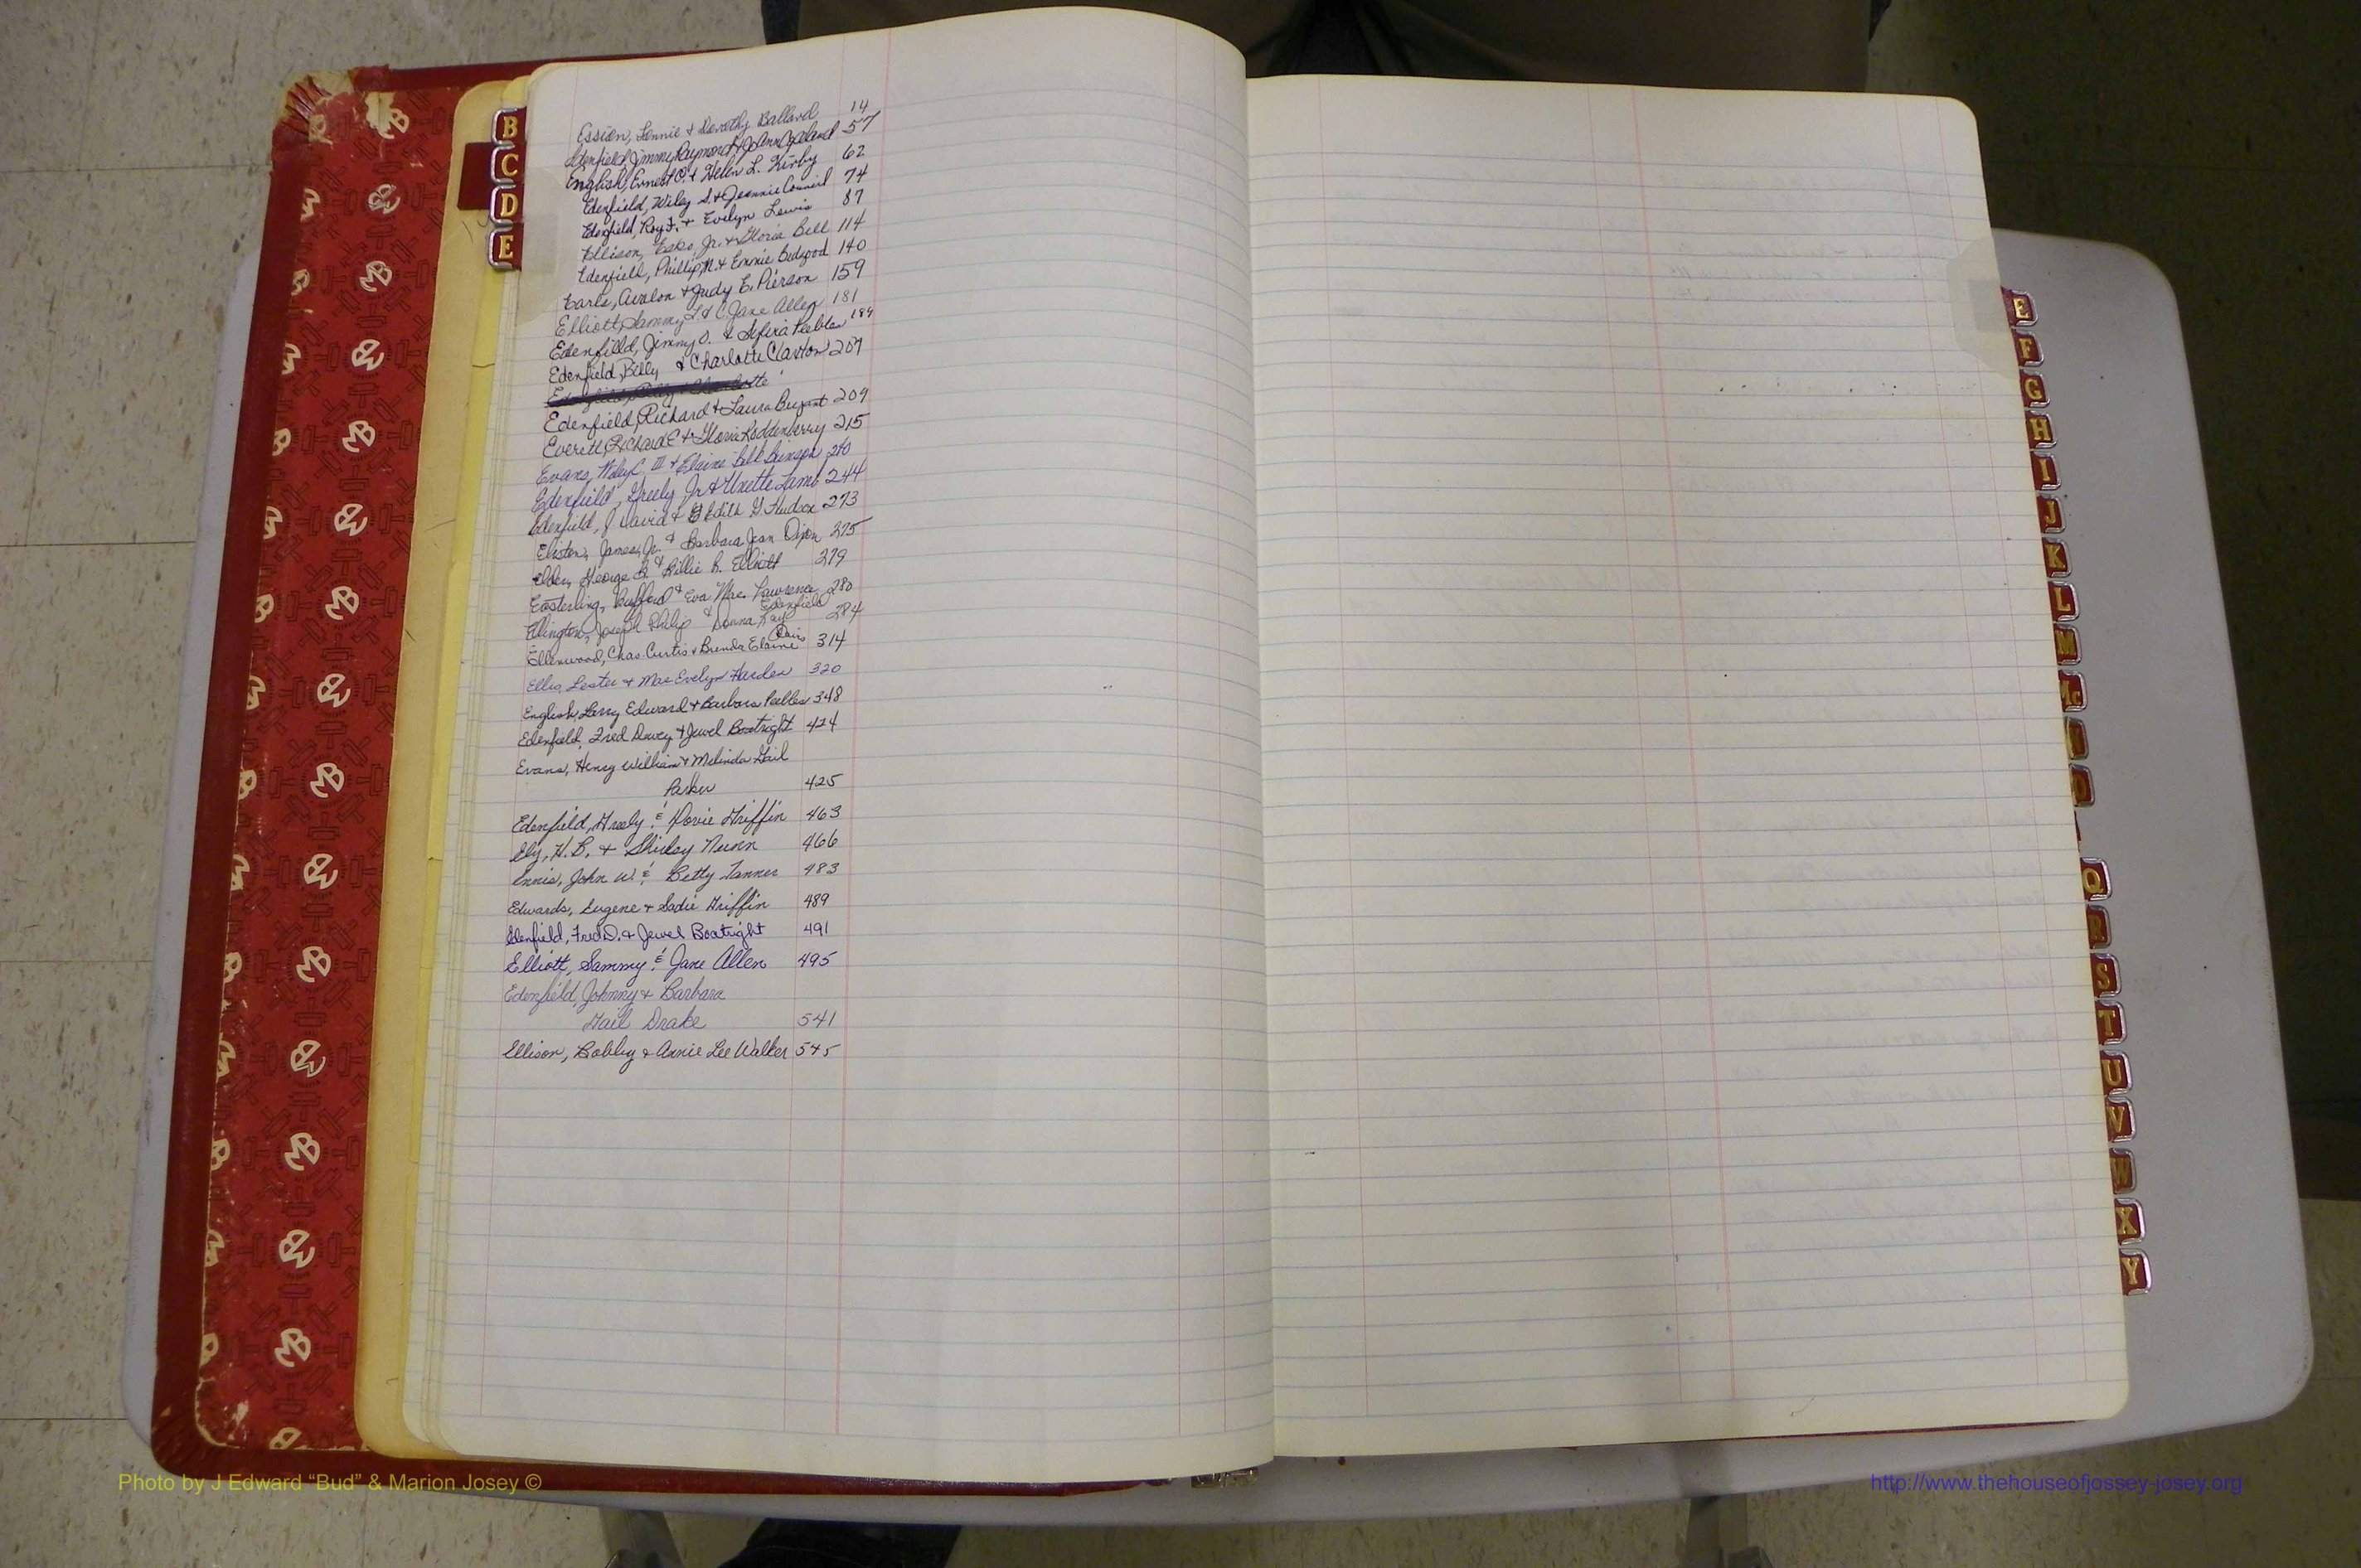 B
C
D
E
Essien, Lonnie & Dorothy Ballard 14
Edenfield, Jimmy Raymond & JoAnn 57
English, Ernest C. & Helen L. Kirby 62
Edenfield, Wiley S. & Jeannie Council 74
Edenfield, Roy F. & Evelyn Lewis 87
Ellison, Jr. & Gloria Bell 114
Edenfield, Phillip M. & Emmie Bedgood 140
Earls, Avalon & Judy E. Pierson 159
Elliott, Sammy L. & C. Jane Allen 181
Edenfield, Jimmy O. & Peebles 189
Edenfield, Billy & Charlotte Claxton 207
Edenfield, Richard & Laura Bryant 209
Everett, Richard E & Gloria Roddenberry 215
Evans, Wiley C. III & Elaine Bell 240
Edenfield, Greely, Jr & Unette Lamb 244
Edenfield, J David & Edith G. Hudson 273
James, Jr. & Barbara Jean Dixon 275
Elder, George B. & Billie R. Elliott 279
Easterling, Bufford & Eva Mae Lawrence 280
Edenfield
Ellington, Joseph Philip & Donna Kaye 284
Davis
Ellenwood, Chas Curtis & Brenda Elaine 314
Ellis, Lester & Mae Evelyn Harden 320
English, Larry Edward & Barbara Peebles 348
Edenfield, Fred Dewey & Jewel Boatright 424
Evans, Henry William & Melinda Gail
Parker 425
Edenfield, Greely & Dovie Griffin 463
Ely, H.B. & Shirley Nunn 466
Ennis, John W. & Betty Tanner 483
Edwards, Eugene & Sadie Griffin 489
Edenfield, Fred D. & Jewel Boatright 491
Elliott, Sammy & Jane Allen 495
Edenfield, Johnny & Barbara
Gail Drake 541
Ellison, Bobby & Annie Lee Walker 545
E
F
G
H
I
J
K
L
M
Mc
O
Q
R
S
T
U
V
W
X
Y
Photo by J Edward “Bud” & Marion Josey ©
http://www.thehouseofjossey-josey.org